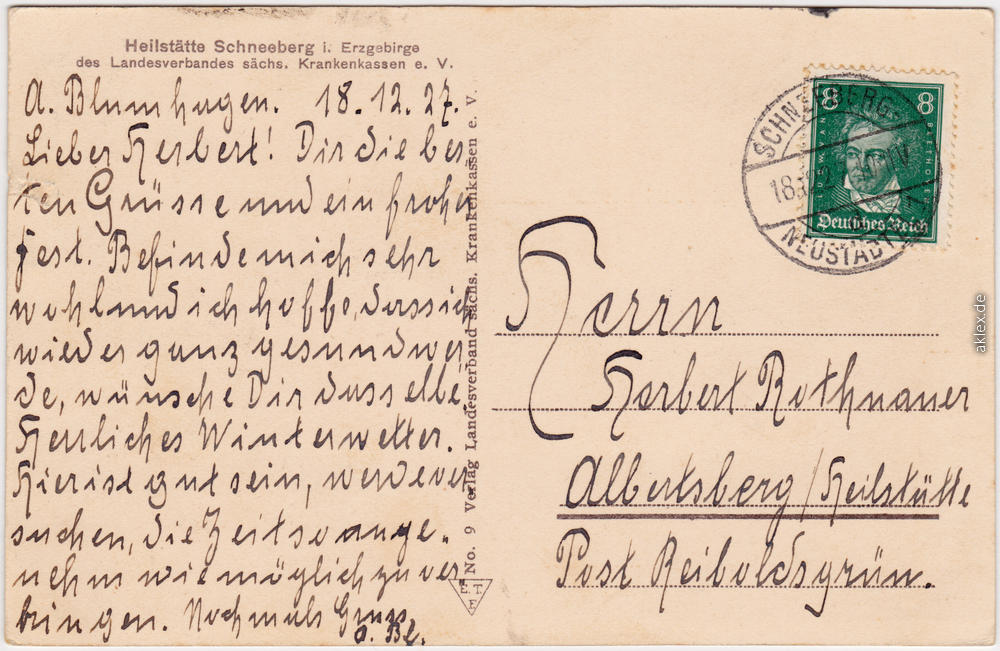 Heilstätte Schneeberg i. Erzgebirge
des Landesverbandes sächs. Krankenkassen e. V.
A. Blumhagen. 18.12.27.
Lieber Herbert! Dir die bes
ten Grüsse und ein frohes
Fest. Befinde mich sehr
wohl und ich hoffe, dass ich
wieder ganz gesund wer
de, wünsche Dir dasselbe.
Herrliches Winterwetter.
Hier ist gut sein, werde ver
suchen, die Zeit so ange-
nehm wie möglich zu ver
bringen. Nochmals Gruss
A. Bl.
No. 9 Verlag Landesverband sächs. Krankenkassen e. V.
E. T.
F.
8 8
LUDW. VAN BEETHOVEN
Deutsches Reich
SCHNEEBERG-
18.12.
NEUSTÄDTEL
Herrn
Herbert Rothnauer
Albertsberg / Heilstätte
Post Reiboldsgrün.
aklex.de